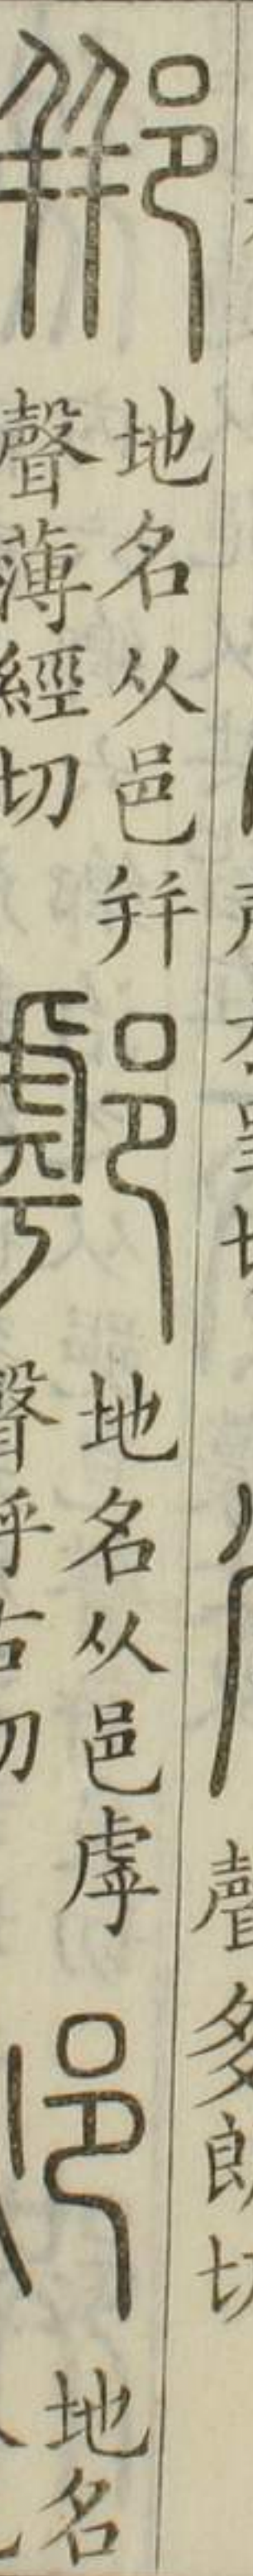 聲多朗切
郱
地名从邑幷
聲薄經切
𨞙
地名从邑虖
聲呼古切
地名